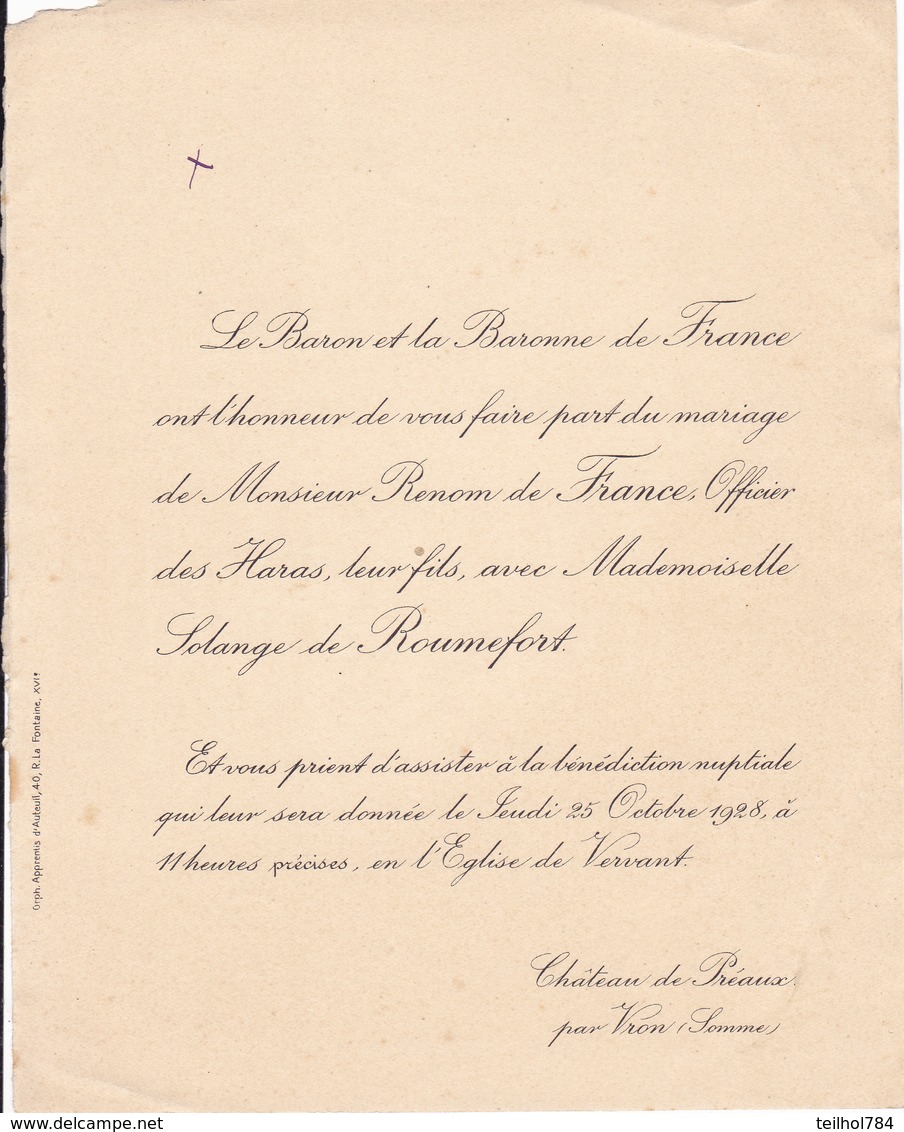 Le Baron et la Baronne de France
ont l'honneur de vous faire part du mariage
de Monsieur Renom de France, Officier
des Haras, leur fils, avec Mademoiselle
Solange de Roumefort.
Et vous prient d'assister à la bénédiction nuptiale
qui leur sera donnée le Jeudi 25 Octobre 1928, à
11 heures précises, en l'Eglise de Vervant.
Château de Préaux.
par Vron (Somme)
Orph. Apprentis d'Auteuil, 40, R. La Fontaine, XVIe
delcampe.net
teilhol784